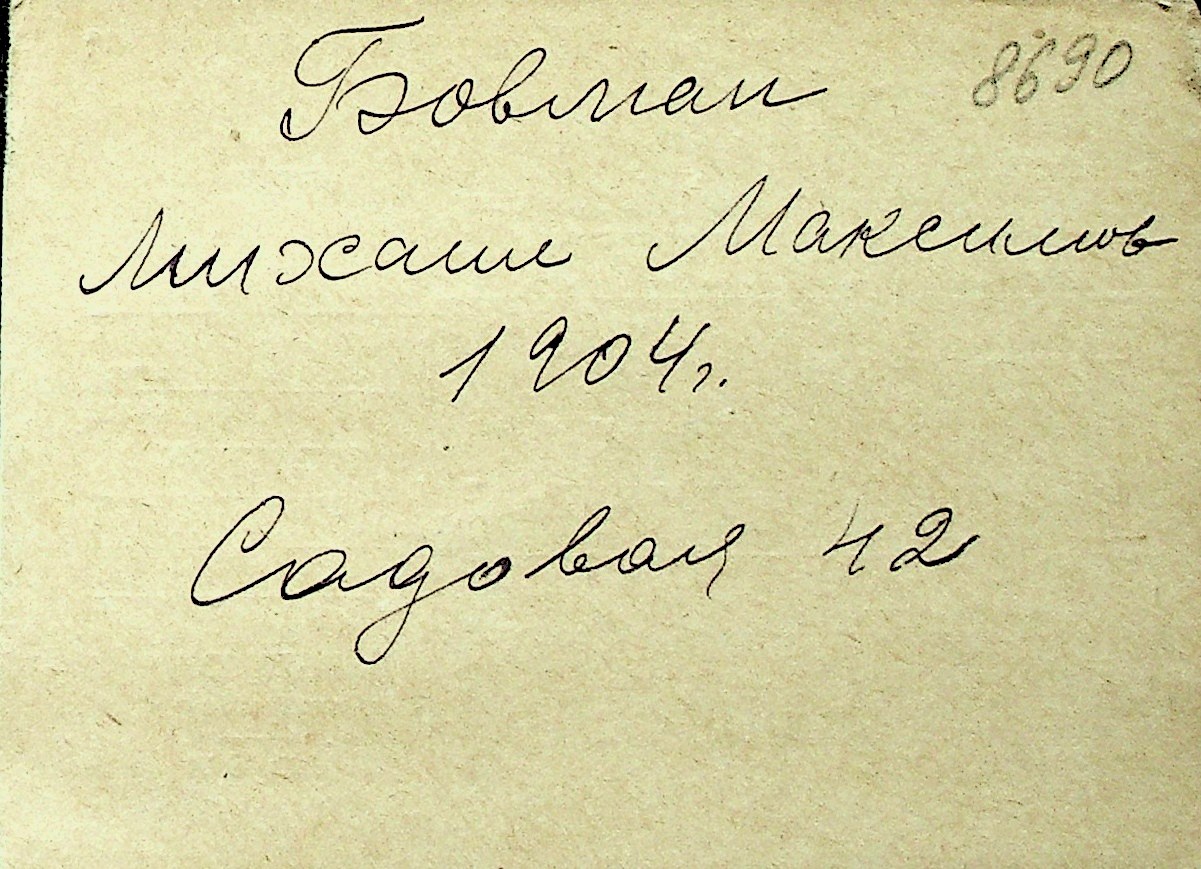 Бовман 8690
Михаил Максимов
1904 г.
Садовая 42